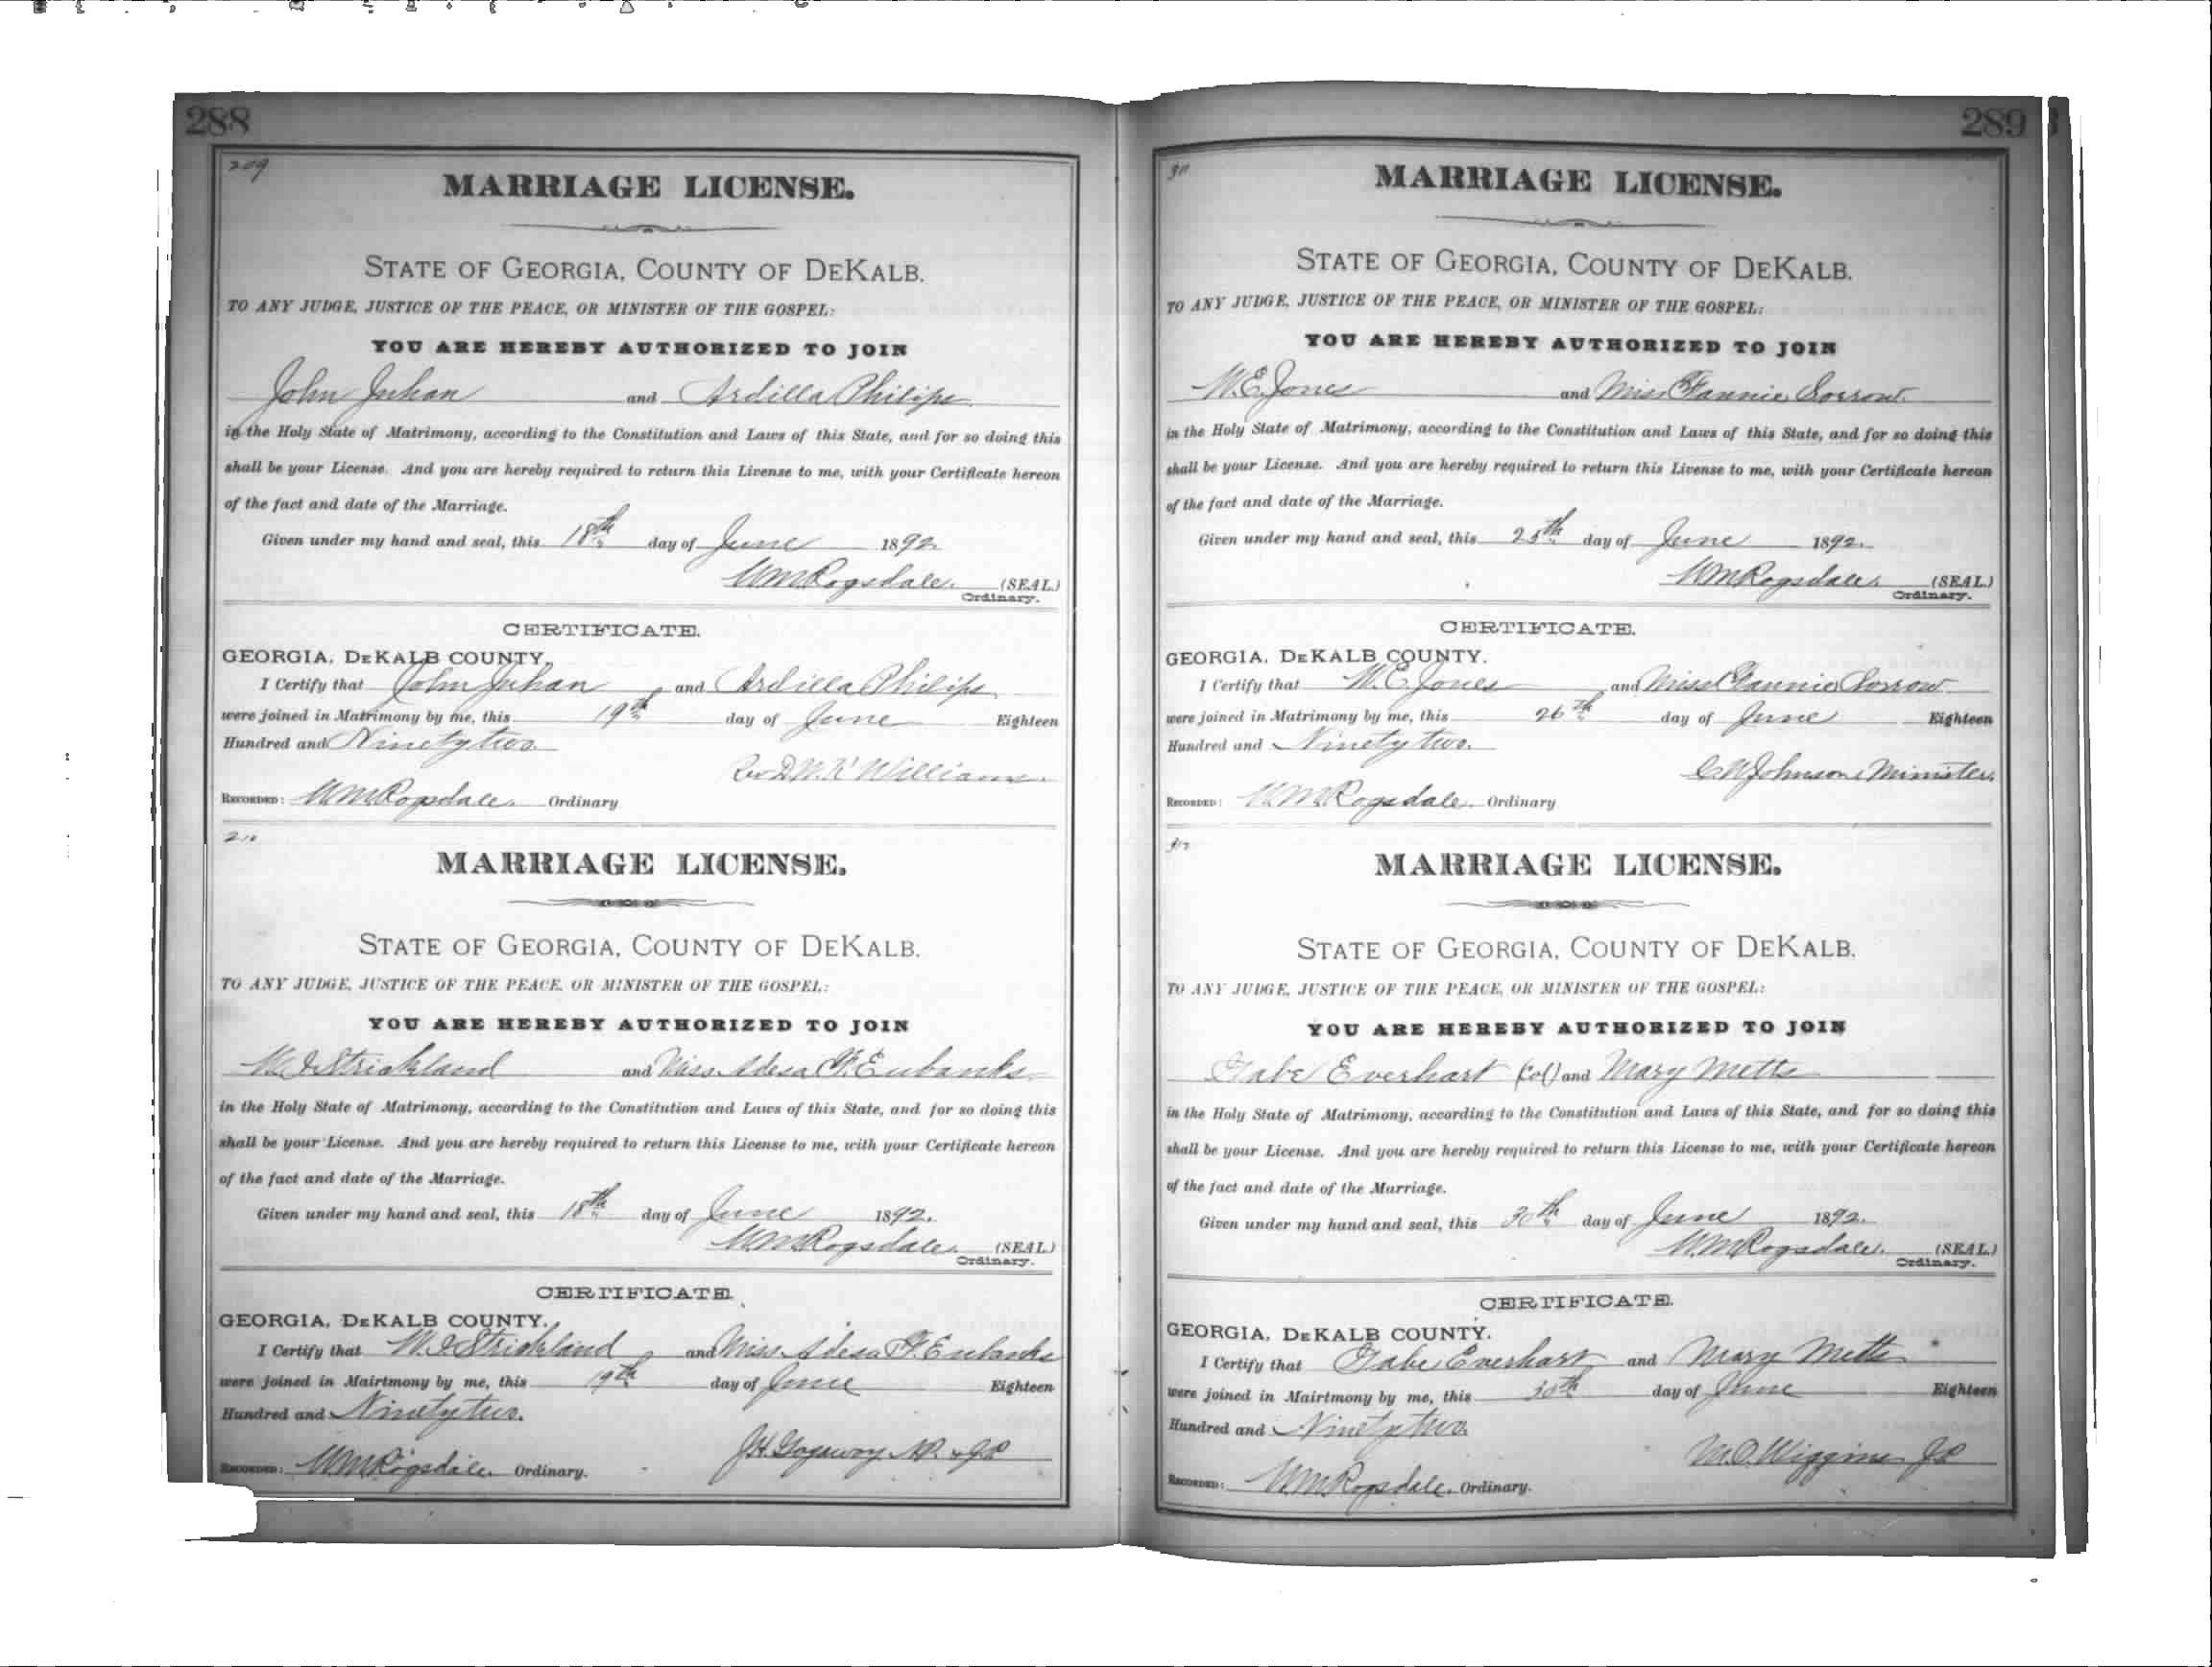 288
209
MARRIAGE LICENSE.
STATE OF GEORGIA, COUNTY OF DEKALB.
TO ANY JUDGE, JUSTICE OF THE PEACE, OR MINISTER OF THE GOSPEL:
YOU ARE HEREBY AUTHORIZED TO JOIN
John Juhan and Ardilla Philips
in the Holy State of Matrimony, according to the Constitution and Laws of this State, and for so doing this
shall be your License. And you are hereby required to return this License to me, with your Certificate hereon
of the fact and date of the Marriage.
Given under my hand and seal, this 18th day of June 1892.
W M Ragsdale. (SEAL)
Ordinary.
CERTIFICATE.
GEORGIA, DEKALB COUNTY.
I Certify that John Juhan and Ardilla Philips
were joined in Matrimony by me, this 19th day of June Eighteen
Hundred and Ninety two.
Rev Williams.
RECORDED: W M Ragsdale. Ordinary
210
MARRIAGE LICENSE.
STATE OF GEORGIA, COUNTY OF DEKALB.
TO ANY JUDGE, JUSTICE OF THE PEACE, OR MINISTER OF THE GOSPEL:
YOU ARE HEREBY AUTHORIZED TO JOIN
Strickland and Miss Adesa F. Eubanks
in the Holy State of Matrimony, according to the Constitution and Laws of this State, and for so doing this
shall be your License. And you are hereby required to return this License to me, with your Certificate hereon
of the fact and date of the Marriage.
Given under my hand and seal, this 18th day of June 1892.
W M Ragsdale. (SEAL)
Ordinary.
CERTIFICATE.
GEORGIA, DEKALB COUNTY.
I Certify that Strickland and Miss Adesa F. Eubanks
were joined in Mairtmony by me, this 19th day of June Eighteen
Hundred and Ninety two.
J.H. N.P. & J.P.
RECORDED: W M Ragsdale. Ordinary.
289
311
MARRIAGE LICENSE.
STATE OF GEORGIA, COUNTY OF DEKALB.
TO ANY JUDGE, JUSTICE OF THE PEACE, OR MINISTER OF THE GOSPEL:
YOU ARE HEREBY AUTHORIZED TO JOIN
W. E. Jones and Miss Fannie Sorrow.
in the Holy State of Matrimony, according to the Constitution and Laws of this State, and for so doing this
shall be your License. And you are hereby required to return this License to me, with your Certificate hereon
of the fact and date of the Marriage.
Given under my hand and seal, this 25th day of June 1892.
W M Ragsdale. (SEAL)
Ordinary.
CERTIFICATE.
GEORGIA, DEKALB COUNTY.
I Certify that W. E. Jones and Miss Fannie Sorrow
were joined in Matrimony by me, this 26th day of June Eighteen
Hundred and Ninety two.
C W Johnson Minister.
RECORDED: W M Ragsdale. Ordinary
312
MARRIAGE LICENSE.
STATE OF GEORGIA, COUNTY OF DEKALB.
TO ANY JUDGE, JUSTICE OF THE PEACE, OR MINISTER OF THE GOSPEL:
YOU ARE HEREBY AUTHORIZED TO JOIN
Gabe Everhart (Col) and Mary Metts
in the Holy State of Matrimony, according to the Constitution and Laws of this State, and for so doing this
shall be your License. And you are hereby required to return this License to me, with your Certificate hereon
of the fact and date of the Marriage.
Given under my hand and seal, this 30th day of June 1892.
W M Ragsdale. (SEAL)
Ordinary.
CERTIFICATE.
GEORGIA, DEKALB COUNTY.
I Certify that Gabe Everhart and Mary Metts
were joined in Mairtmony by me, this 30th day of June Eighteen
Hundred and Ninety two.
M.O. Wiggins JP
RECORDED: W M Ragsdale. Ordinary.